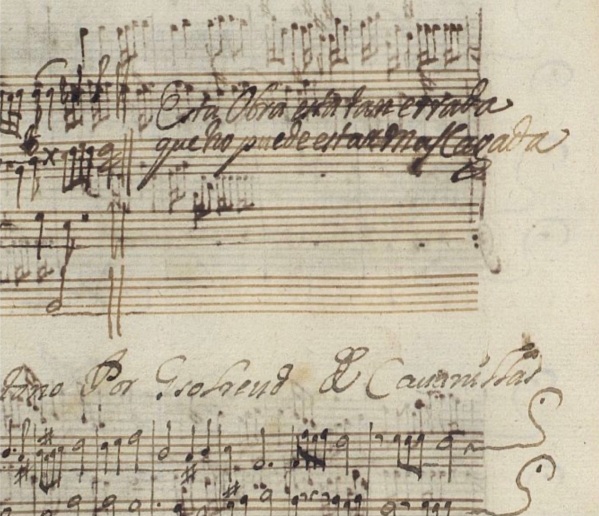 Esta Obra esta tan errada
que no puede estar mas Cagada
Por Gsolreud De Cavanillas